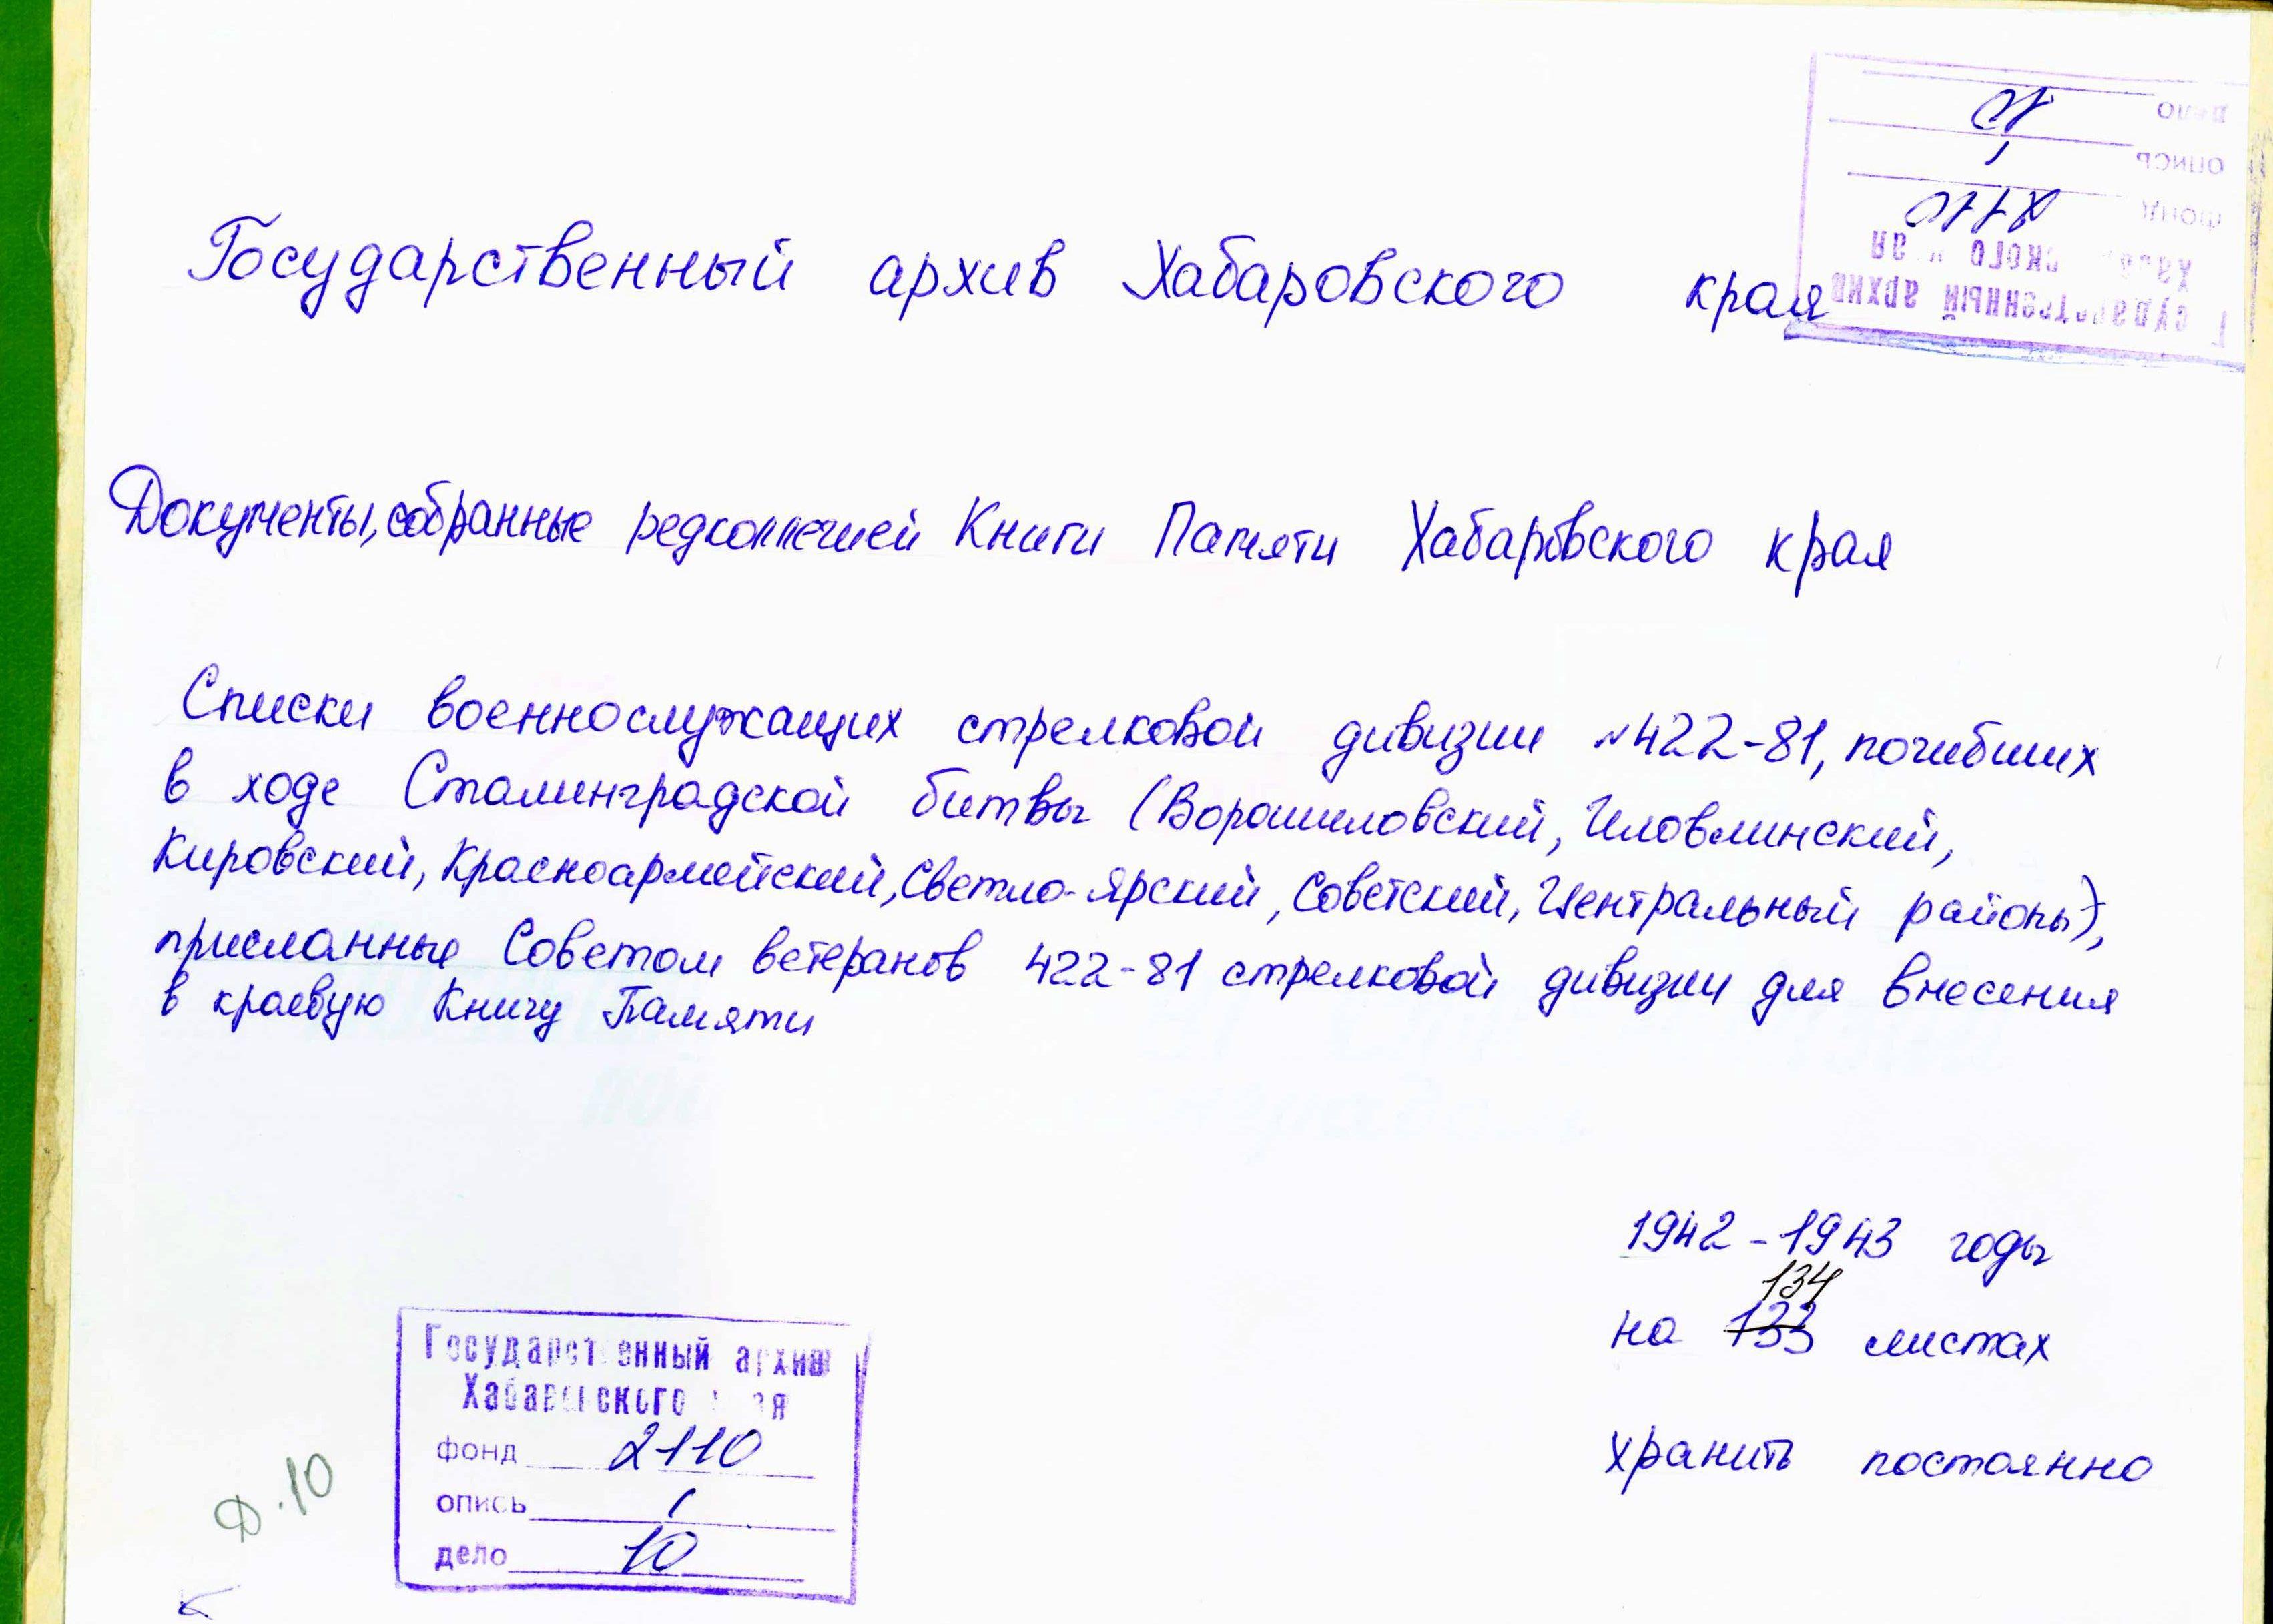 Государственный архив Хабаровского края
Документы, собранные редколлегией Книги Памяти Хабаровского края
Списки военнослужащих стрелковой дивизии №422-81, погибших
в ходе Сталинградской битвы (Ворошиловский, Иловлинский,
Кировский, Красноармейский, Светло-Ярский, Советский, Центральный районы),
присланные Советом ветеранов 422-81 стрелковой дивизии для внесения
в краевую Книгу Памяти
1942-1943 годы
134
на 133 листах
хранить постоянно
Государственный архив
Хабаровского края
фонд 2110
опись 1
дело 10
Д.10
Государственный архив
Хабаровского края
фонд 2110
опись 1
дело 10